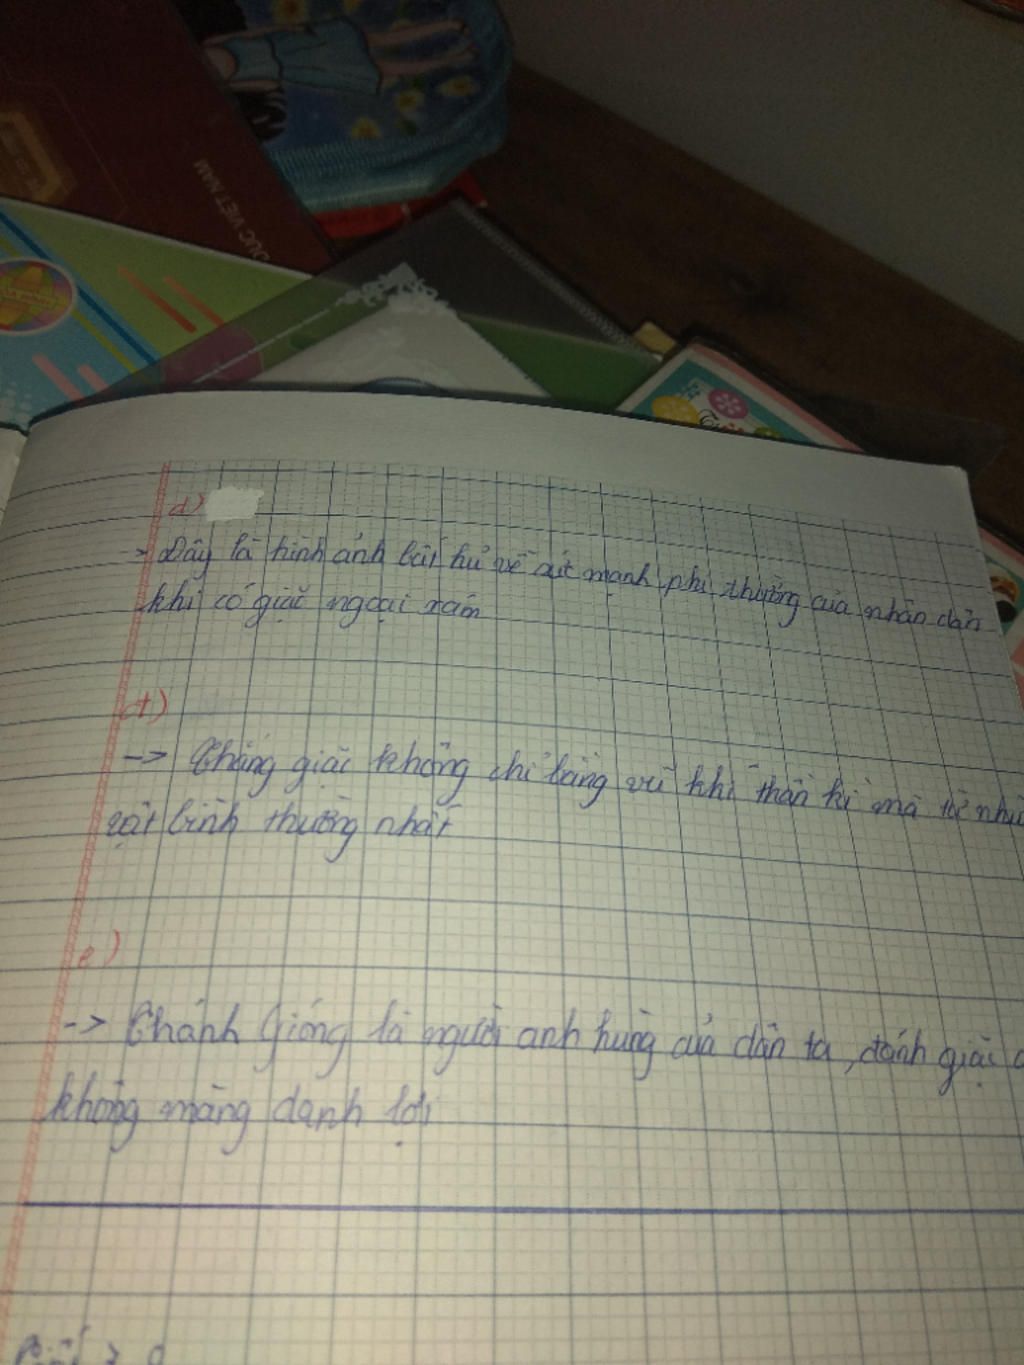 DỤC VIỆT NAM
d)
-> Đây là hình ảnh bất hủ về sức mạnh phi thường của nhân dân
khi có giặc ngoại xâm
đ)
-> Thắng giặc không chỉ bằng vũ khí thần kì mà từ
vật bình thường nhất
e)
-> Thánh Gióng là người anh hùng của dân ta, đánh giặc
không màng danh lợi